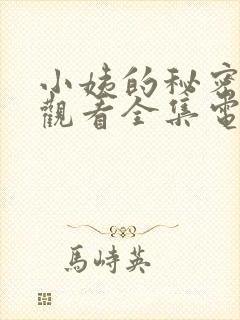 小姨的秘密
觀看全集電
馬峙英